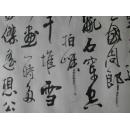 國周郎
亂石穿空
拍岸
雪
畫一時多
傑遥想公